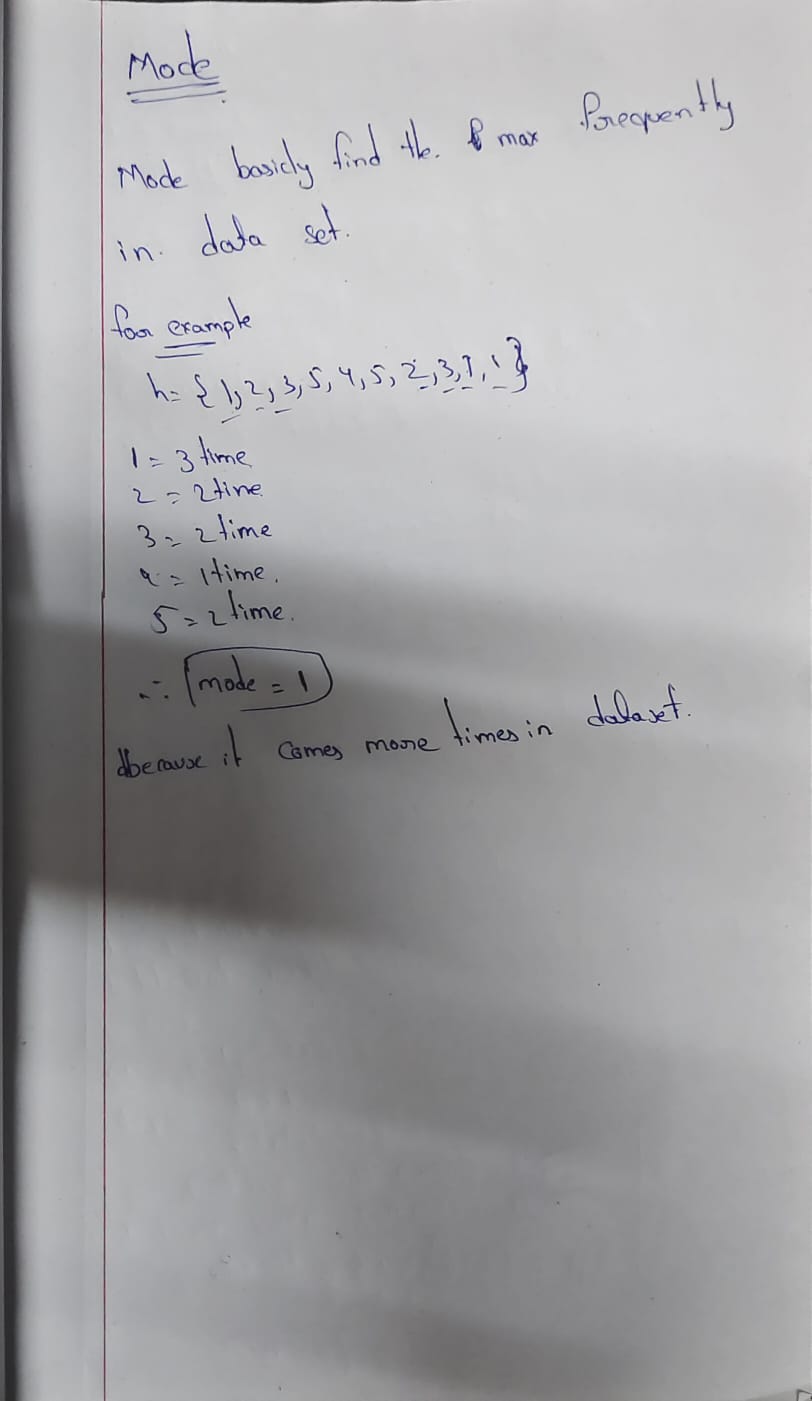 Mode
Mode basicly find the. max forequently
in. data set.
foor example
h= {1,2,3,5,4,5,2,3,1,1}
1 = 3 time
2 = 2 time
3 = 2 time
4 = 1 time.
5 = 2 time.
∴ mode = 1
because it comes moore times in dataset.